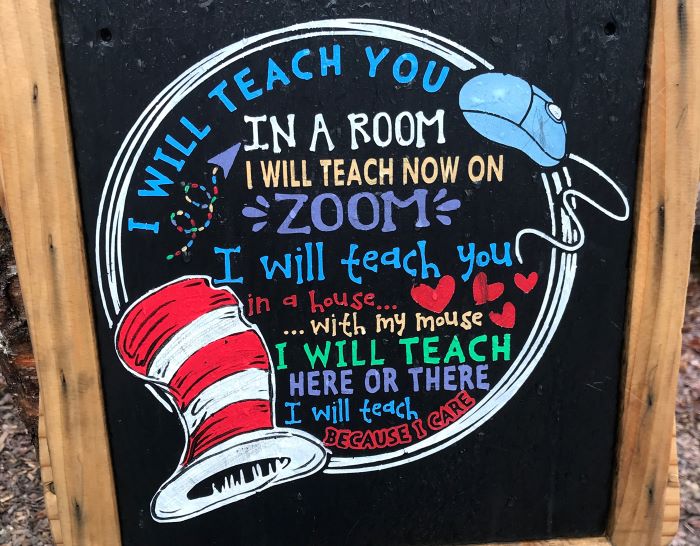 I WILL TEACH YOU
IN A ROOM
I WILL TEACH NOW ON
ZOOM
I will teach you
in a house...
...with my mouse
I WILL TEACH
HERE OR THERE
I will teach
BECAUSE I CARE